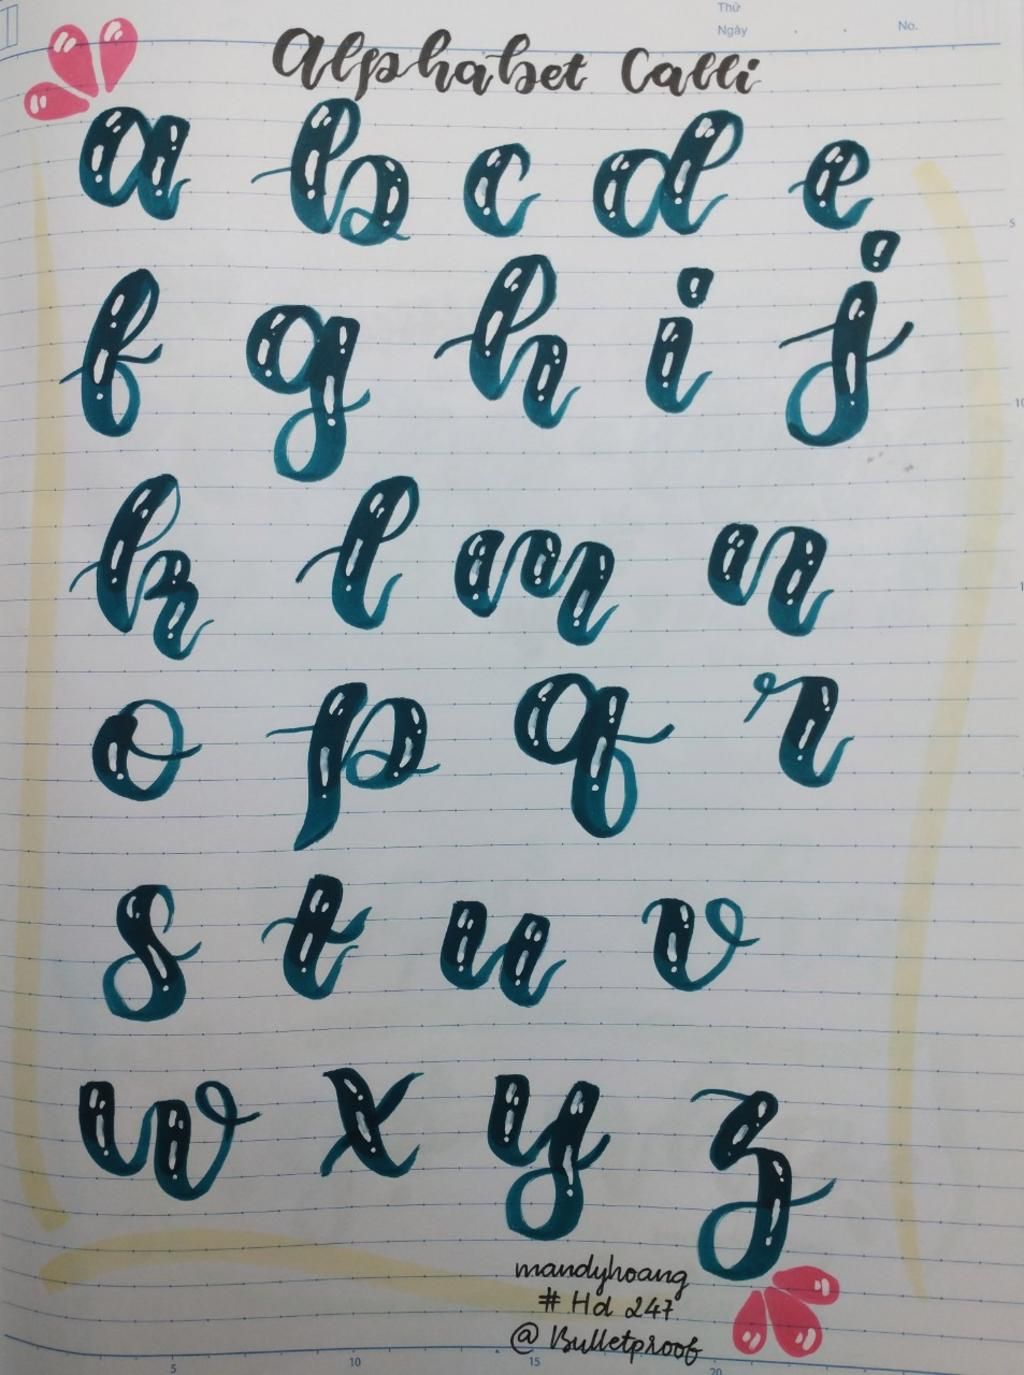 Thứ
Ngày No.
Alphabet Calli
a b c d e
5
f g h i j
10
k l m n
o p q r
s t u v
w x y z
mandyhoang
# Hd 247
@ Bulletproof
5 10 15 20